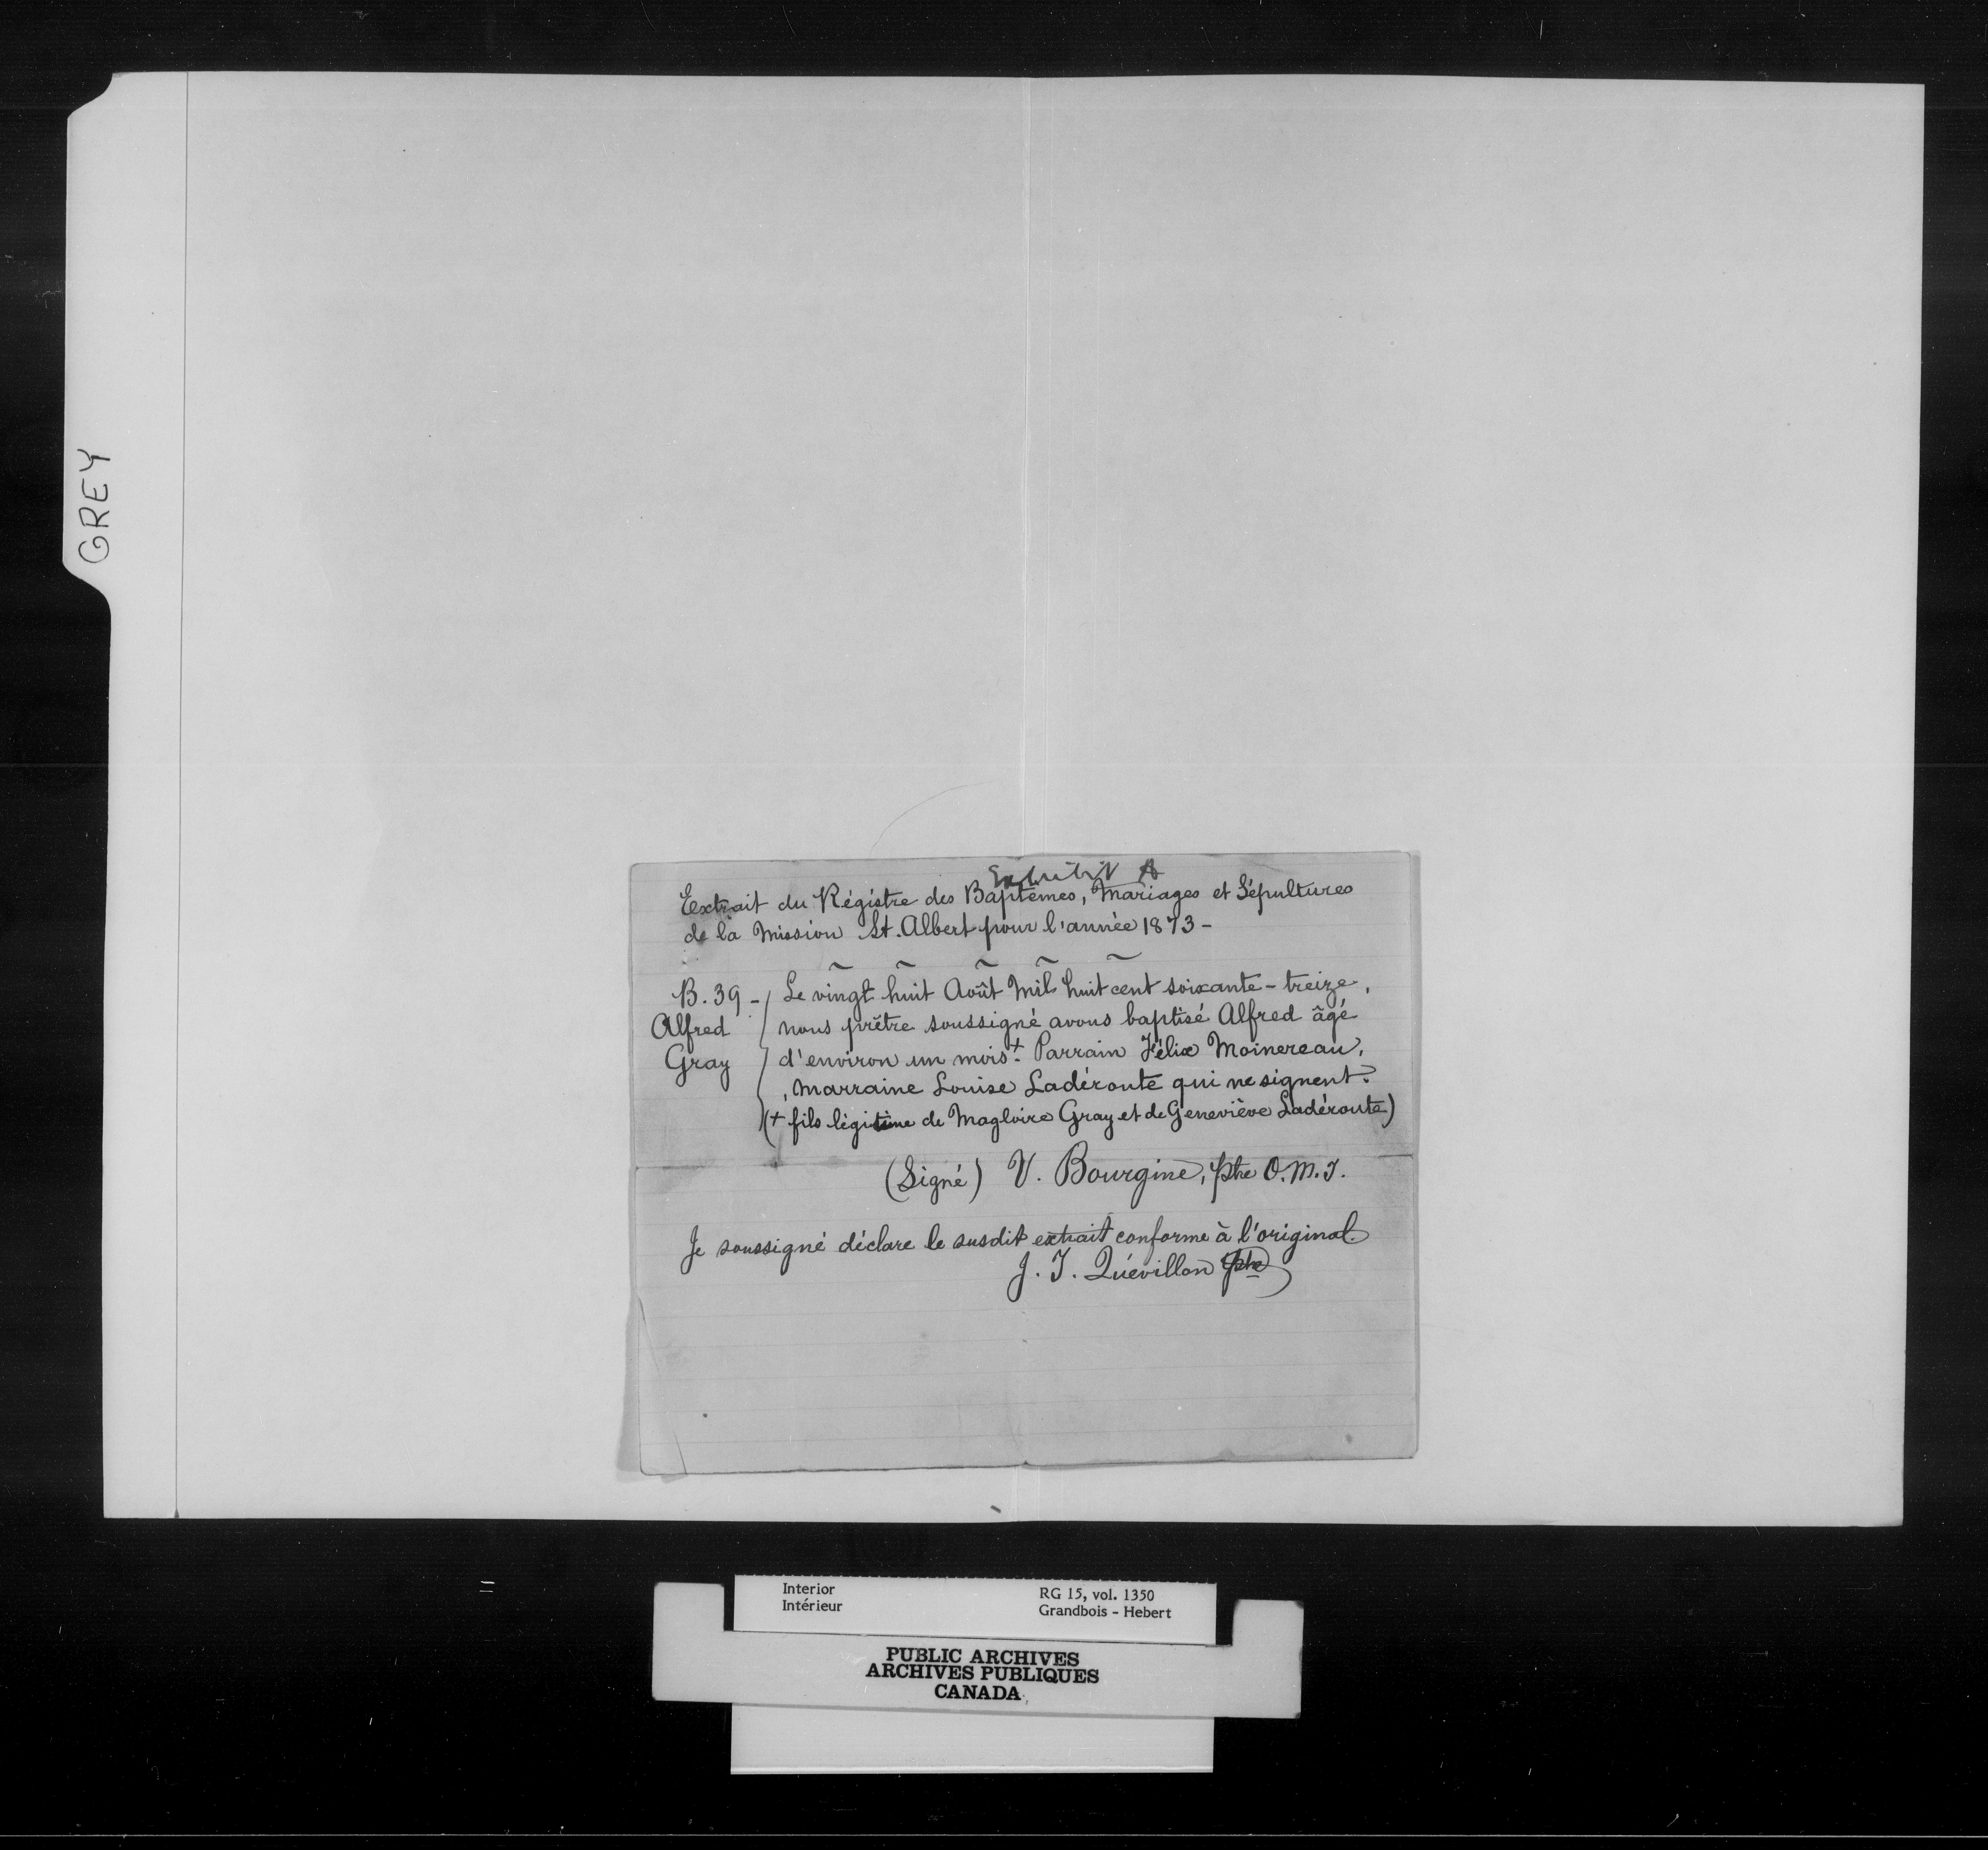 GREY
Exhibit A
Extrait du Régistre des Baptêmes, Mariages et Sépultures
de la Mission St. Albert pour l'année 1873 -
B. 39 - Alfred Gray
Le vingt huit Août Mil huit cent soixante-treize,
nous prêtre soussigné avons baptisé Alfred âgé
d'environ un mois +. Parrain Félix Moinereau,
, Marraine Louise Ladéroute qui ne signent.
(+ fils légitime de Magloire Gray et de Geneviève Ladéroute)
(Signé) V. Bourgine, ptre O.M.I.
Je soussigné déclare le susdit extrait conforme à l'original.
J. I. Quévillon ptre
Interior
Intérieur
RG 15, vol. 1350
Grandbois - Hebert
PUBLIC ARCHIVES
ARCHIVES PUBLIQUES
CANADA